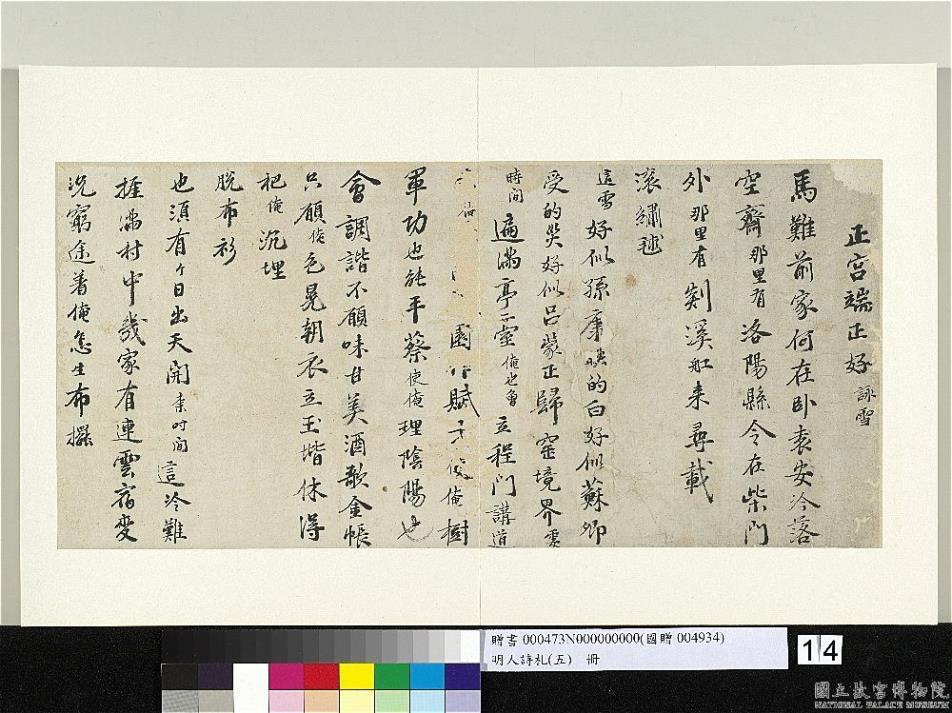 正宮端正好 詠雪
馬難前家何在臥袁安冷落
空齋那里有洛陽縣令在柴門
外那里有剡溪舡来尋載
滚繡毬
這雪好似孫康映的白好似蘇卿
受的災好似呂蒙正歸窑境界
時间遍满亭臺俺也曾立程門講道
園 賦 俺樹
軍功也能平蔡使俺理陰陽也
會調諧不願味甘美酒歌金帳
只願俺色晃朝衣立玉堦休得
把俺沉埋
脫布衫
也須有个日出天開 这冷難
捱满村中幾家有連雲宿麥
况窮途着俺怎生布擺
贈書 000473N000000000(國贈 004934)
明人詩札(五) 冊
14
國立故宮博物院
NATIONAL PALACE MUSEUM